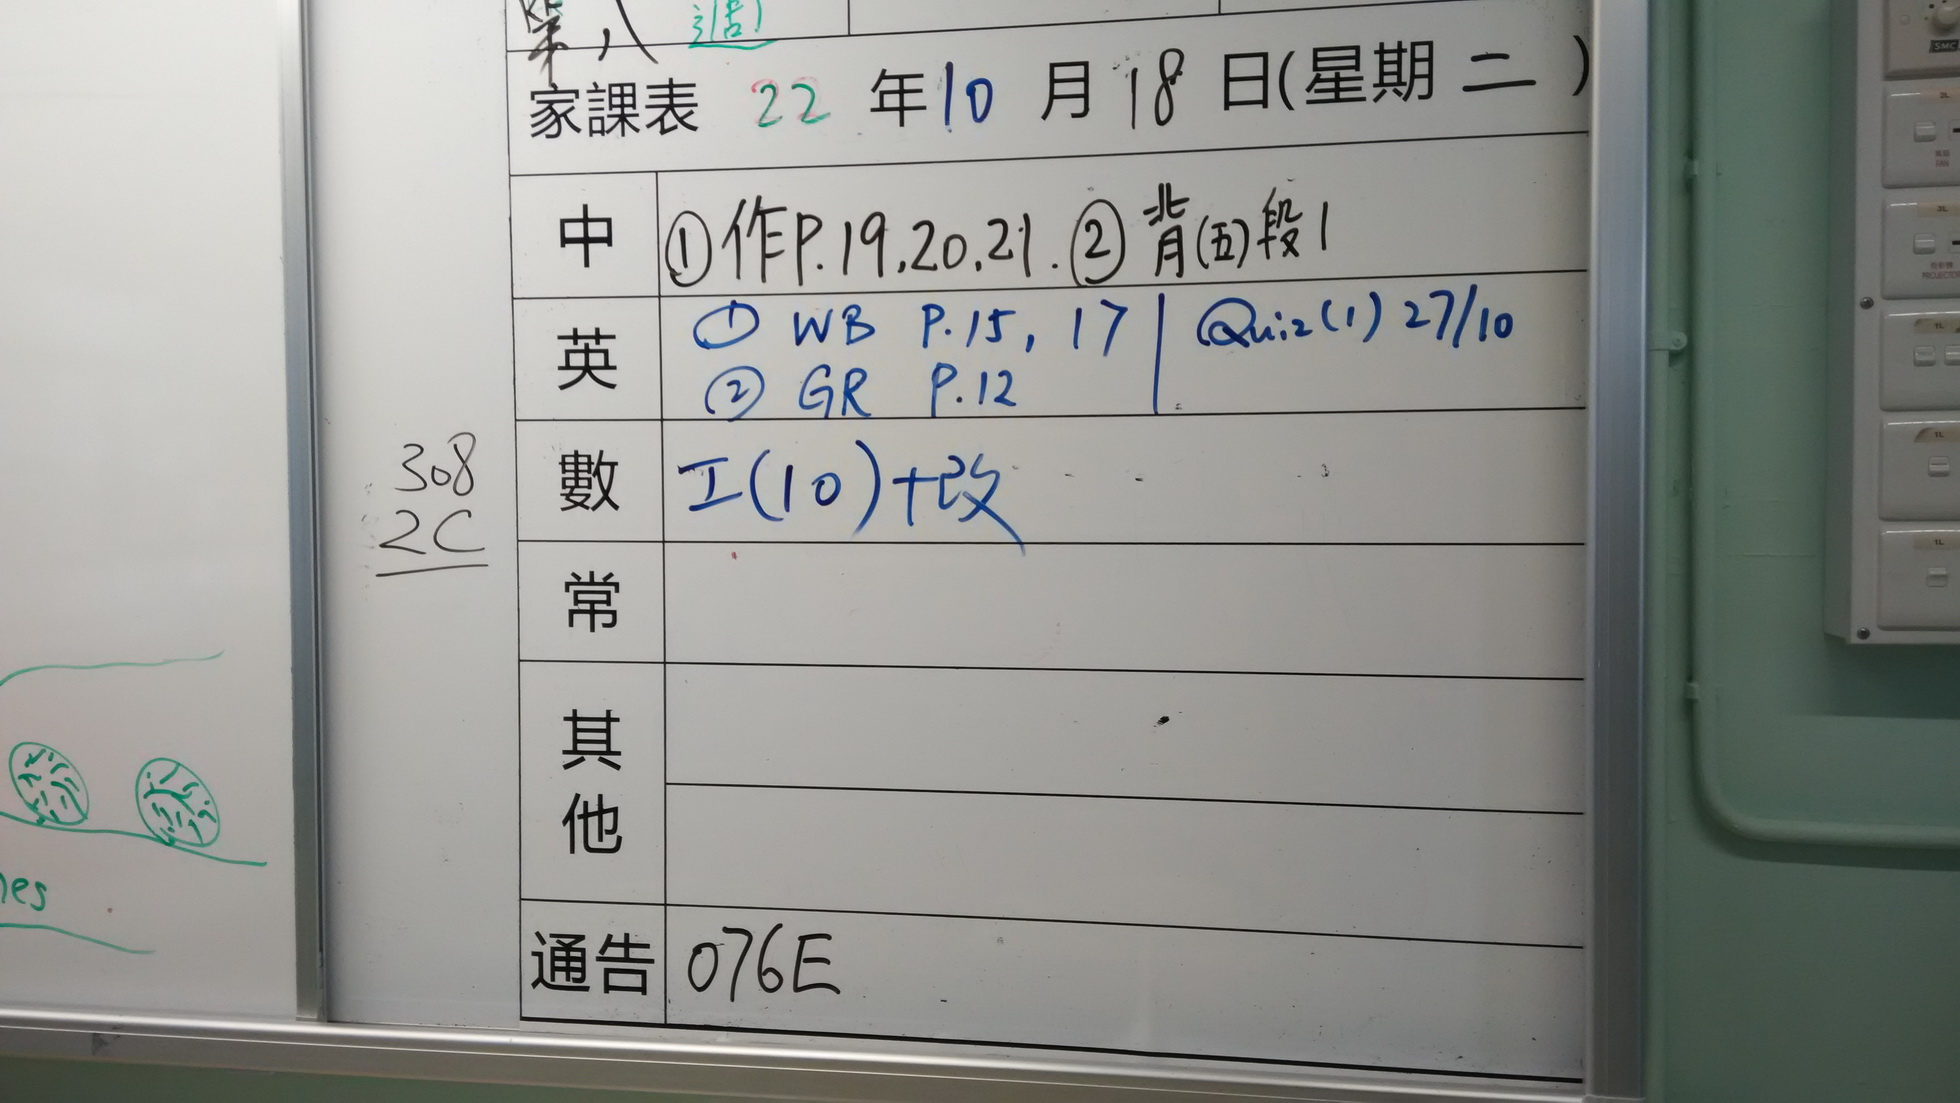 第八週
家課表 22 年 10 月 18 日(星期 二 )
中 ①作P.19,20,21. ②背(五)段1
英 ① WB P.15, 17 | Quiz(1) 27/10
② GR P.12
數 工(10)+改
308
2C
常
其他
通告 076E
nes
SMC